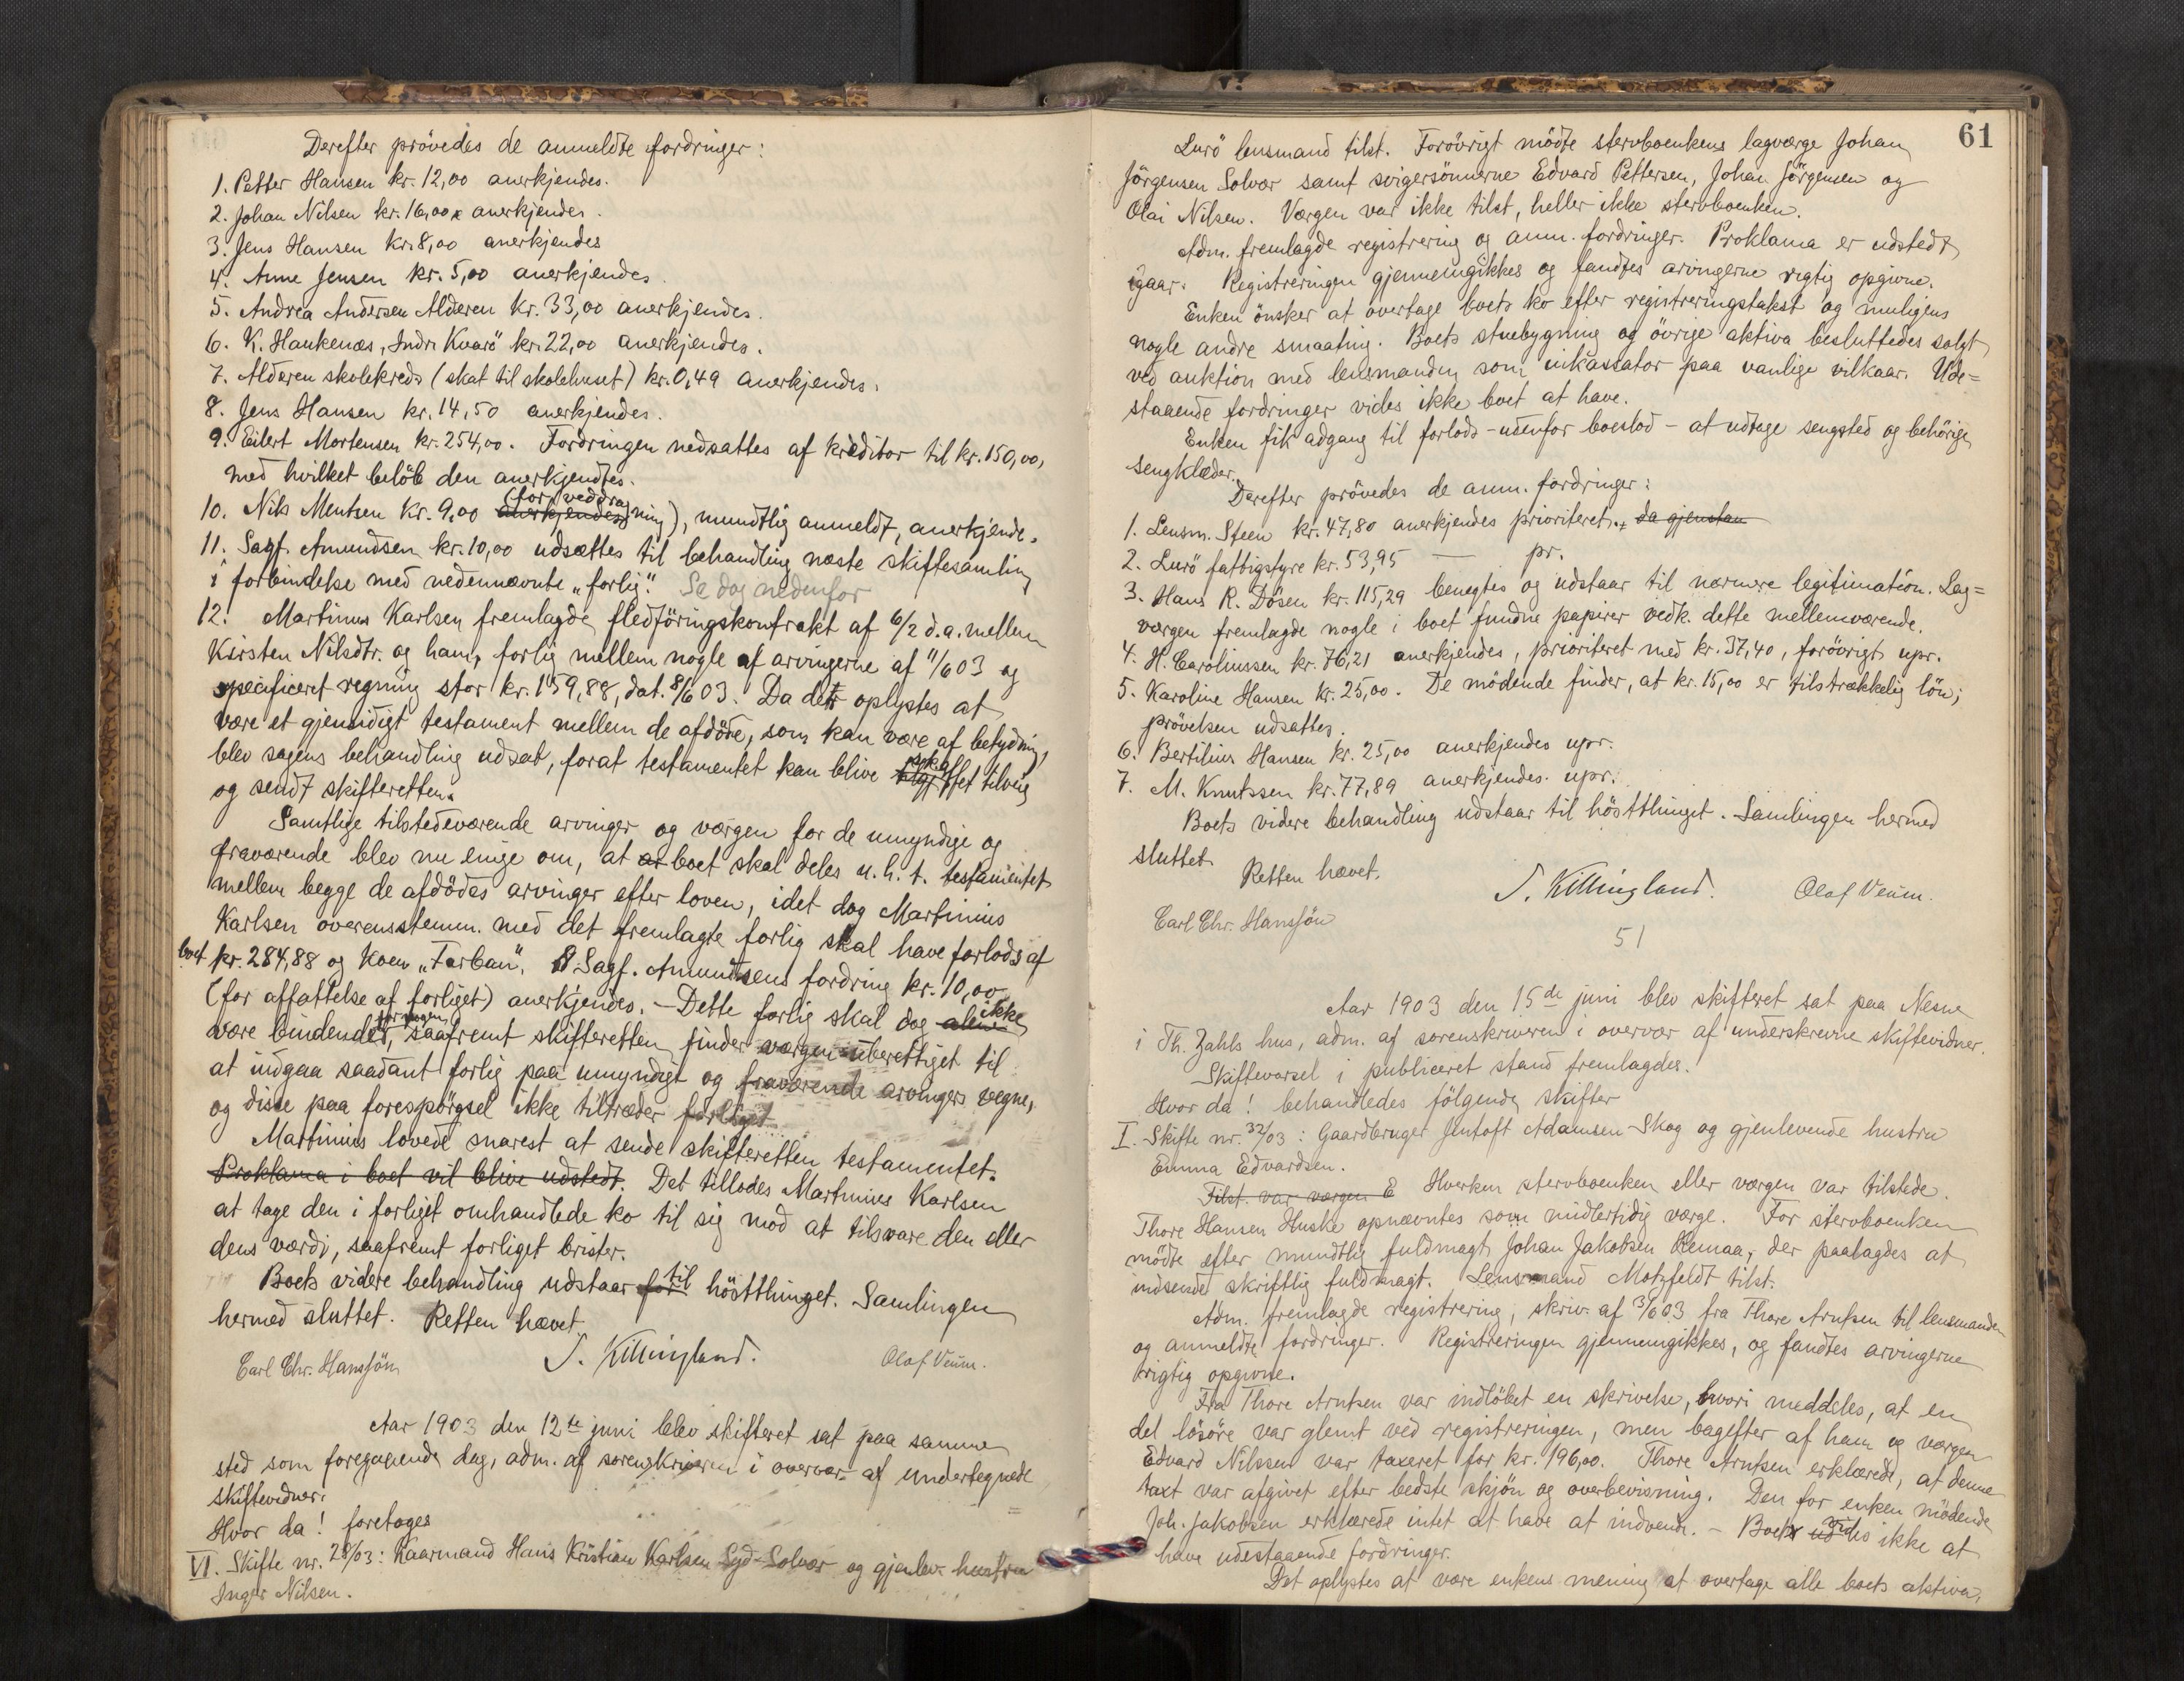 Derefter prövedes de anmeldte fordringer:
1. Petter Hansen kr. 12,00 anerkjendes.
2. Johan Nilsen kr. 16,00 anerkjendes.
3. Jens Hansen kr. 8,00 anerkjendes
4. Anne Jensen kr. 5,00 anerkjendes.
5. Andrea Andersen Alderen kr. 33,00 anerkjendes.
6. K. Haukenæs, Indr. Kvarö kr. 22,00 anerkjendes.
7. Alderen skolekreds (skat til skolehuset) kr. 0,49 anerkjendes.
8. Jens Hansen kr. 14,50 anerkjendes.
9. Eilert Mortensen kr. 254,00. Fordringen nedsattes af kreditor til kr. 150,00,
med hvilket belöb den anerkjendtes.
10. Nils Mentsen kr. 9,00 anerkjendes (for veddragning), mundtlig anmeldt, anerkjendes.
11. Sagf. Amundsen kr. 10,00 udsættes til behandling næste skiftesamling
i forbindelse med nedennævnte „forlig". Se dog nedenfor
12. Martinus Karlsen fremlagde fledföringskontrakt af 6/2 d.a. mellem
Kirsten Nilsdtr. og ham, forlig mellem nogle af arvingerne af 11/6 03 og
specificeret regning stor kr. 159,88, dat. 8/6 03. Da det oplystes at
være et gjensidigt testament mellem de afdöde, som kan være af betydning,
blev sagens behandling udsat, forat testamentet kan blive skaffet tilveie
og sendt skifteretten.
Samtlige tilstedeværende arvinger og værgen for de umyndige og
fraværende blev nu enige om, at boet skal deles u.h.t. testamentet
mellem begge de afdödes arvinger efter loven, idet dog Martinius
Karlsen overensstemm. med det fremlagte forlig skal have forlods af
boet kr. 284,88 og koen „Farban". Sagf. Amundsens fordring kr. 10,00
(for affattelse af forliget) anerkjendes. - Dette forlig skal dog ikke
være bindende for nogen, saafremt skifteretten finder værgen uberettiget til
at indgaa saadant forlig paa umyndigt og fraværende arvingers vegne,
og disse paa forespörgsel ikke tiltræder forliget
Martinius lovede snarest at sende skifteretten testamentet.
Proklama i boet vil blive udstedt. Det tillodes Martinius Karlsen
at tage den i forliget omhandlede ko til sig mod at tilsvare den eller
dens værdi, saafremt forliget brister.
Boets videre behandling udstaar for til hösttthinget. Samlingen
hermed sluttet. Retten hævet.
Carl Chr. Hanssön S. Killingland. Olaf Veum.
Aar 1903 den 12te juni blev skifteret sat paa samme
sted som foregaaende dag, adm. af sorenskriveren i overvær af undertegnede
skiftevidner.
Hvor da! foretoges
VI. Skifte nr. 28/03: Kaarmand Hans Kristian Karlsen Syd-Solvær og gjenlev. hustru
Inger Nilsen.
61
Lurö lensmand tilst. Forövrigt mödte stervboenkens lagværge Johan
Jörgensen Solvær samt svigersönnerne Edvard Pettersen, Johan Jörgensen og
Olai Nilsen. Værgen var ikke tilst, heller ikke stervboenken.
Adm. fremlagde registrering og anm. fordringer. Proklama er udstedt
igaar. Registreringen gjennemgikkes og fandtes arvingerne rigtig opgivne.
Enken önsker at overtage boets ko efter registreringstakst og muligens
nogle andre smaating. Boets stuebygning og övrige aktiva besluttedes solgt
ved auktion med lensmanden som inkassator paa vanlige vilkaar. Ude=
staaende fordringer vides ikke boet at have.
Enken fik adgang til forlods - udenfor boeslod - at udtage sengsted og behörige
sengklæder.
Derefter prövedes de anm. fordringer:
1. Lensm. Steen kr. 47,80 anerkjendes prioriteret. da gjenstan
2. Lurö fattigstyre kr. 53,95 — pr.
3. Hans R. Dösen kr. 115,29 benegtes og udstaar til nærmere legitimation. Lag=
værgen fremlagde nogle i boet fundne papirer vedk. dette mellemværende.
4. H. Carolinssen kr. 76,21 anerkjendes, prioriteret med kr. 37,40, forövrigt upr.
5. Karoline Hansen kr. 25,00. De mödende finder, at kr. 15,00 er tilstrækkelig lön;
prövelsen udsattes.
6. Bertilius Hansen kr. 25,00 anerkjendes upr.
7. M. Knutssen kr. 77,89 anerkjendes. upr.
Boets videre behandling udstaar til höstthinget. Samlingen hermed
sluttet.
Retten hævet.
Carl Chr. Hanssön S. Killingland. Olaf Veum.
51
Aar 1903 den 15de juni blev skifteret sat paa Nesne
i Th. Zahls hus, adm. af sorenskriveren i overvær af underskrevne skiftevidner.
Skiftevarsel i publiceret stand fremlagdes.
Hvor da! behandledes fölgende skifter
I. Skifte nr. 32/03: Gaardbruger Jentoft Adamsen Skog og gjenlevende hustru
Emma Edvardsen.
Tilst. var værgen E Hverken stervboenken eller værgen var tilstede.
Thore Hansen Huske opnævntes som midlertidig værge. For stervboenken
mödte efter mundtlig fuldmagt Johan Jakobsen Remaa, der paalagdes at
indsende skriftlig fuldmagt. Lensmand Motzfeldt tilst.
Adm. fremlagde registrering, skriv. af 3/6 03 fra Thore Arntsen til lensmanden
og anmeldte fordringer. Registreringen gjennemgikkes, og fandtes arvingerne
rigtig opgivne.
Fra Thore Arntsen var indlöbet en skrivelse, hvori meddeles, at en
del lösöre var glemt ved registreringen, men bagefter af ham og værgen
Edvard Nilssen var taxeret for kr. 196,00. Thore Arntsen erklærede, at denne
taxt var afgivet efter bedste skjön og overbevisning. Den for enken mödende
Joh. Jakobsen erklærede intet at have at indvende. - Boet vides ikke at
have udestaaende fordringer.
Det oplystes at være enkens mening at overtage alle boets aktiva,